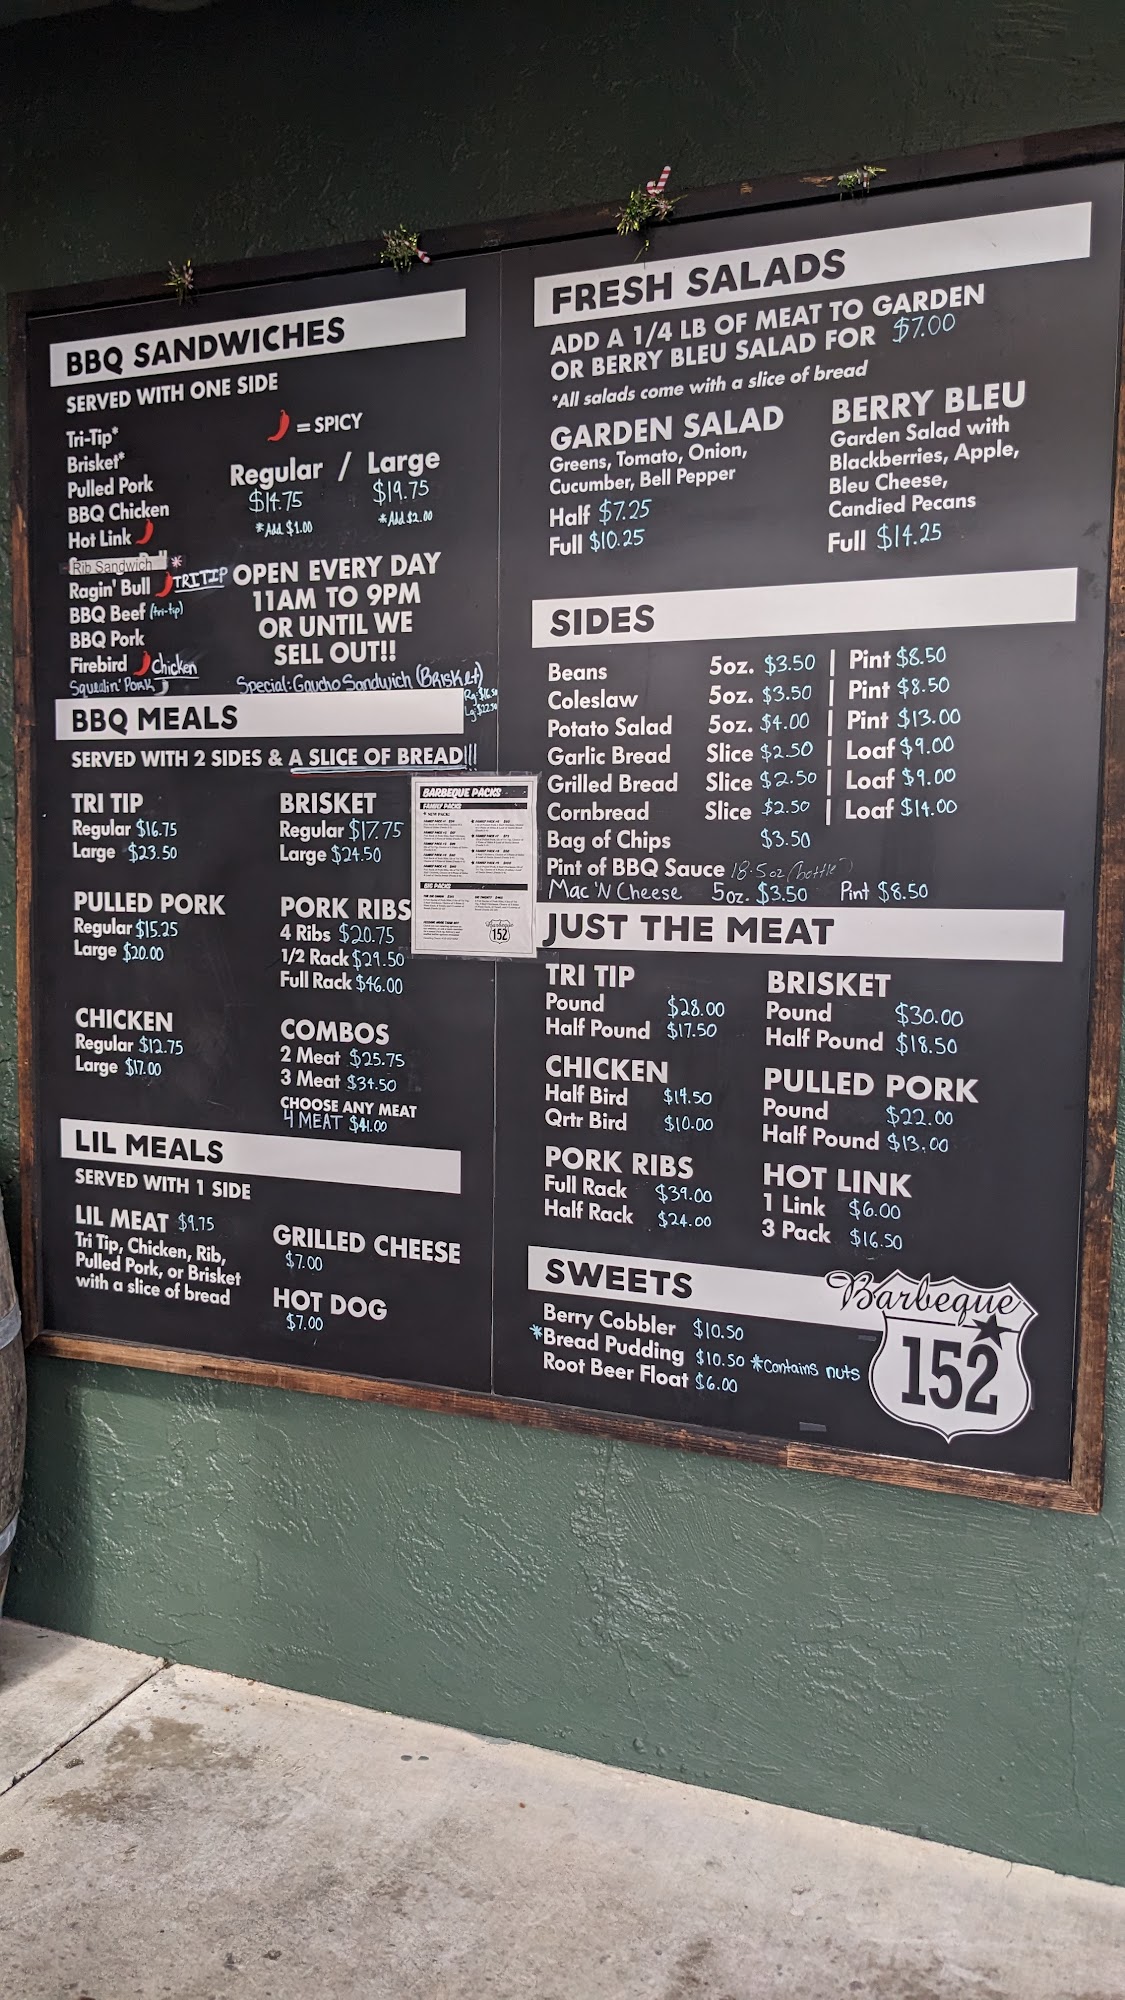 BBQ SANDWICHES
SERVED WITH ONE SIDE
= SPICY
Tri-Tip*
Brisket*
Pulled Pork
BBQ Chicken
Hot Link
Rib Sandwich *
Ragin' Bull TRITIP
BBQ Beef (tri-tip)
BBQ Pork
Firebird Chicken
Squealin' PORK
Regular / Large
$14.75 $19.75
*Add $1.00 *Add $2.00
OPEN EVERY DAY
11AM TO 9PM
OR UNTIL WE
SELL OUT!!
Special: Gaucho Sandwich (BRISKET)
BBQ MEALS
SERVED WITH 2 SIDES & A SLICE OF BREAD!!!
TRI TIP
Regular $16.75
Large $23.50
BRISKET
Regular $17.75
Large $24.50
PULLED PORK
Regular $15.25
Large $20.00
PORK RIBS
4 Ribs $20.75
1/2 Rack $29.50
Full Rack $46.00
CHICKEN
Regular $12.75
Large $17.00
COMBOS
2 Meat $25.75
3 Meat $34.50
CHOOSE ANY MEAT
4 MEAT $41.00
LIL MEALS
SERVED WITH 1 SIDE
LIL MEAT $9.75
Tri Tip, Chicken, Rib,
Pulled Pork, or Brisket
with a slice of bread
GRILLED CHEESE
$7.00
HOT DOG
$7.00
BARBEQUE PACKS
FAMILY PACKS
BIG PACKS
Barbeque
152
FRESH SALADS
ADD A 1/4 LB OF MEAT TO GARDEN
OR BERRY BLEU SALAD FOR $7.00
*All salads come with a slice of bread
GARDEN SALAD
Greens, Tomato, Onion,
Cucumber, Bell Pepper
Half $7.25
Full $10.25
BERRY BLEU
Garden Salad with
Blackberries, Apple,
Bleu Cheese,
Candied Pecans
Full $14.25
SIDES
Beans 5oz. $3.50 | Pint $8.50
Coleslaw 5oz. $3.50 | Pint $8.50
Potato Salad 5oz. $4.00 | Pint $13.00
Garlic Bread Slice $2.50 | Loaf $9.00
Grilled Bread Slice $2.50 | Loaf $9.00
Cornbread Slice $2.50 | Loaf $14.00
Bag of Chips $3.50
Pint of BBQ Sauce 18.5oz (bottle)
Mac 'N Cheese 5oz. $3.50 Pint $8.50
JUST THE MEAT
TRI TIP
Pound $28.00
Half Pound $17.50
BRISKET
Pound $30.00
Half Pound $18.50
CHICKEN
Half Bird $14.50
Qrtr Bird $10.00
PULLED PORK
Pound $22.00
Half Pound $13.00
PORK RIBS
Full Rack $39.00
Half Rack $24.00
HOT LINK
1 Link $6.00
3 Pack $16.50
SWEETS
Berry Cobbler $10.50
*Bread Pudding $10.50 *Contains nuts
Root Beer Float $6.00
Barbeque
152